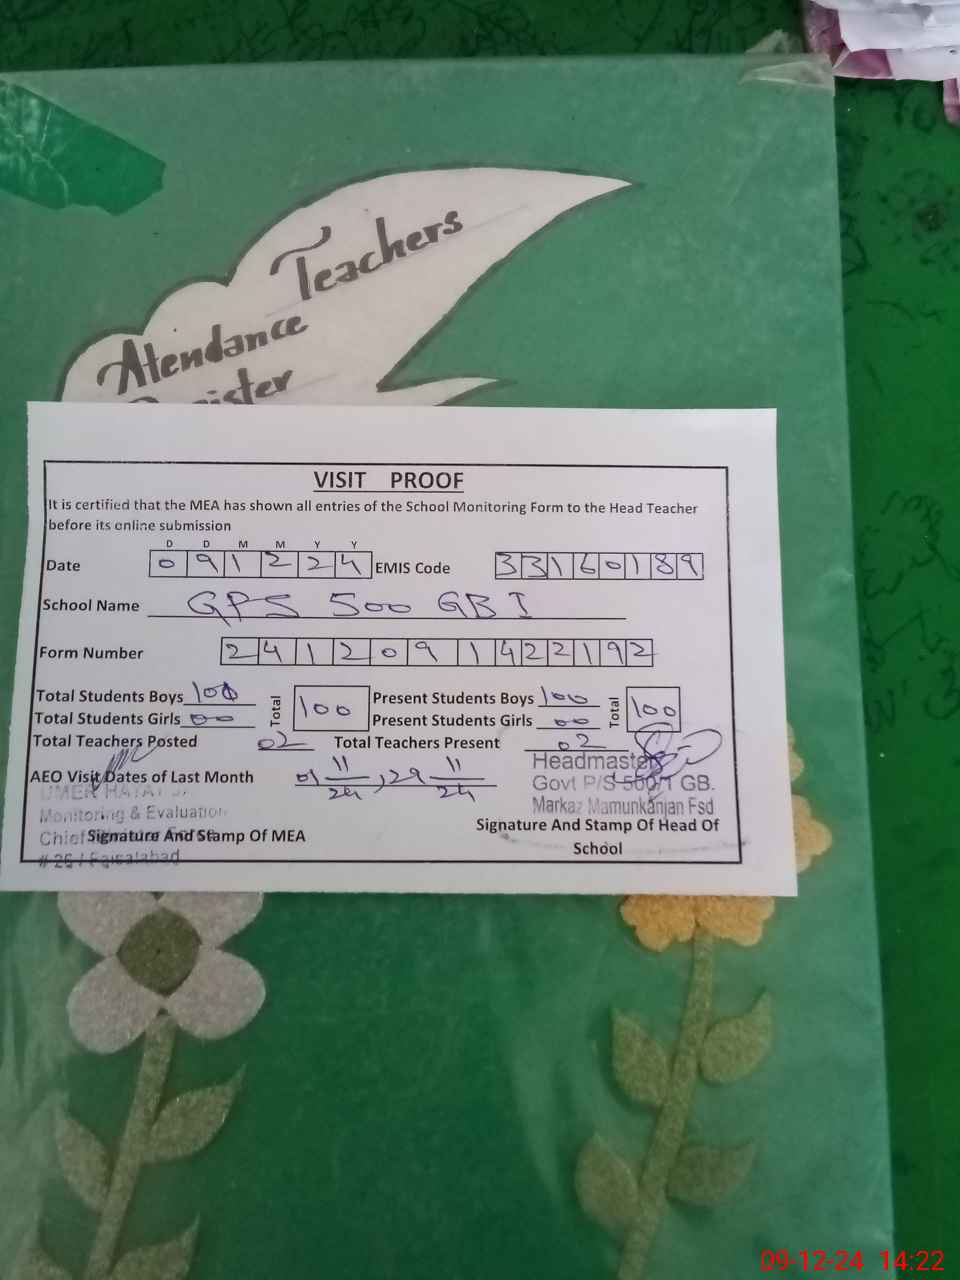 Teachers
Atendance
VISIT PROOF
It is certified that the MEA has shown all entries of the School Monitoring Form to the Head Teacher
before its online submission
D D M M Y Y
Date 0 9 1 2 2 4 EMIS Code 3 3 1 6 0 1 8 9
School Name GPS 500 GB I
Form Number 2 4 1 2 0 9 1 4 2 2 1 9 2
Total Students Boys 100 Total 100 Present Students Boys 100 Total 100
Total Students Girls 00 Present Students Girls 00
Total Teachers Posted 02 Total Teachers Present 02
AEO Visit Dates of Last Month 01 11/24, 29 11/24
Headmaster
Govt P/S 500/1 GB.
Markaz Mamunkanjan Fsd
UMER HAYAT
Monitoring & Evaluation
Signature And Stamp Of MEA
# 26 / Faisalabad
Signature And Stamp Of Head Of
School
09-12-24 14:22